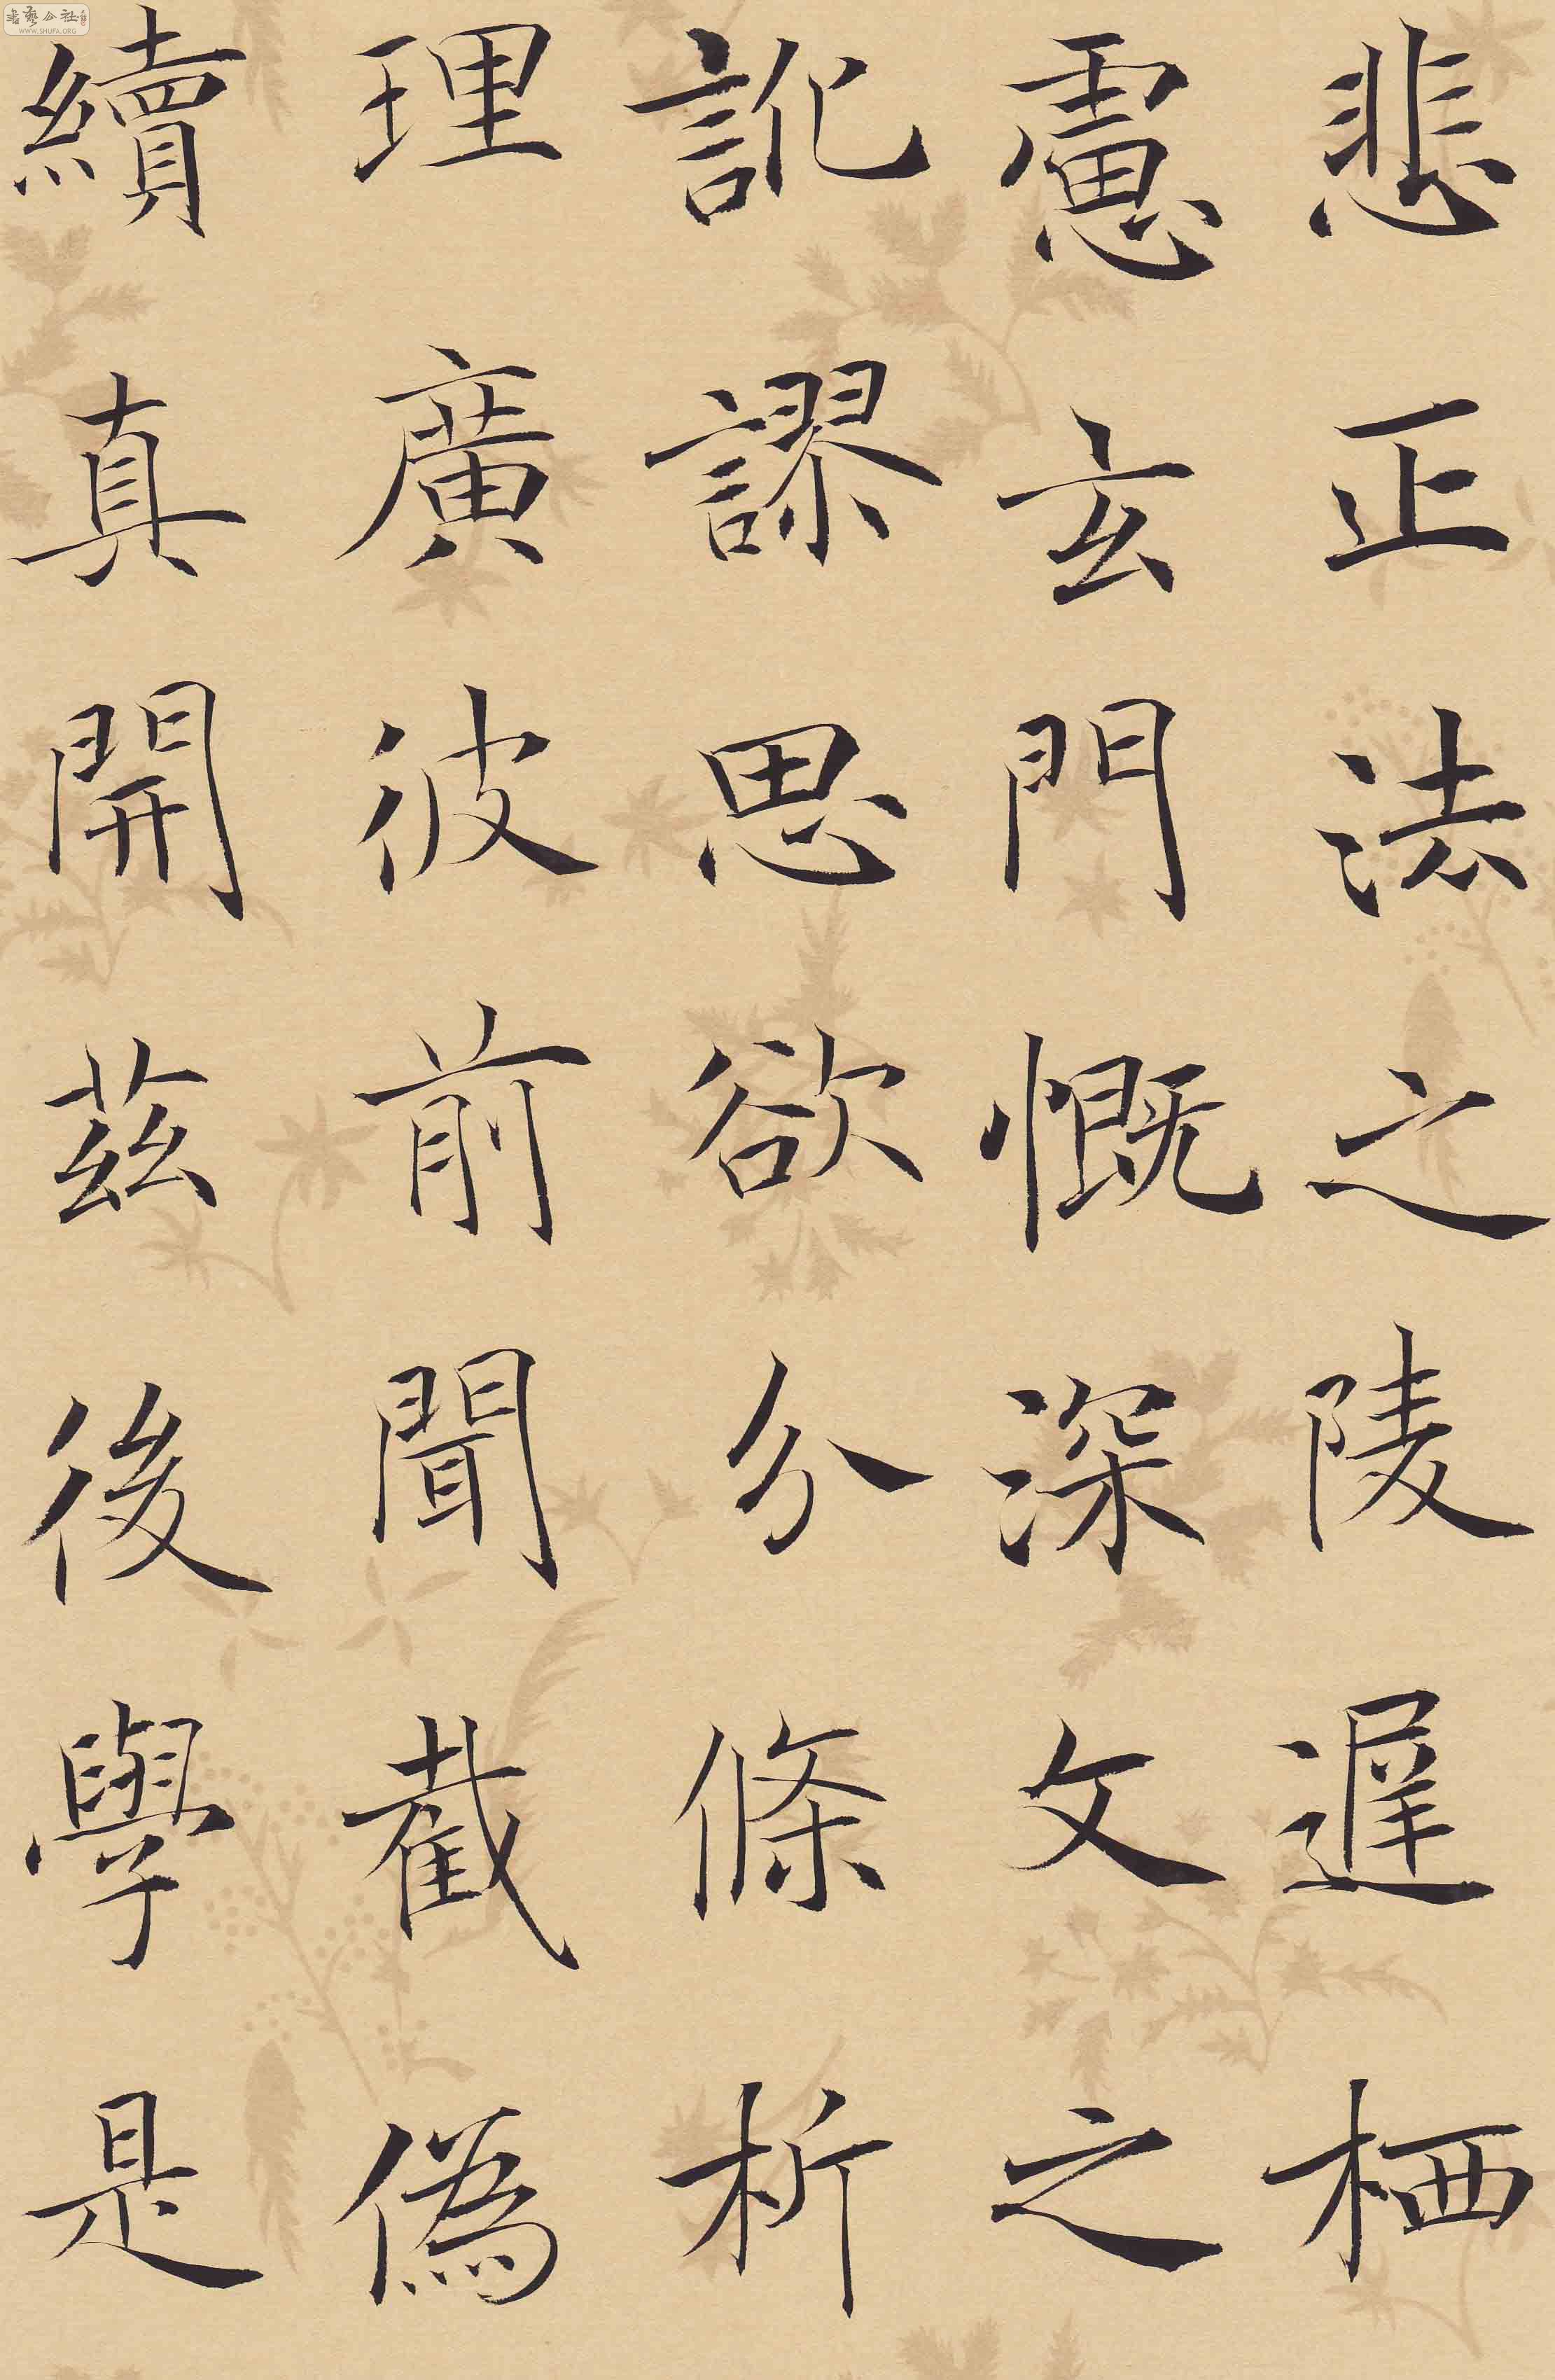 悲正法之陵遲栖
慮玄門慨深文之
訛謬思欲分條析
理廣彼前聞截偽
續真開茲後學是
書藝公社
WWW.SHUFA.ORG